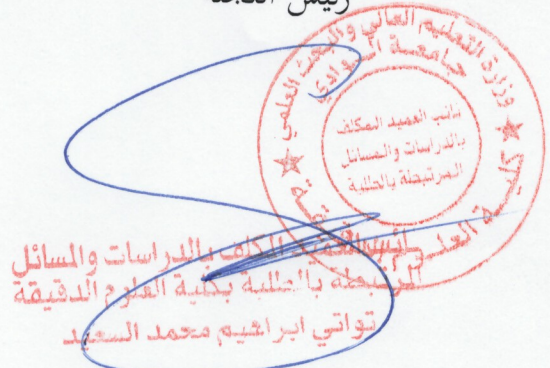 رئيس اللجنة
وزارة التعليم العالي والبحث العلمي
جامعة الوادي
نائب العميد المكلف
بالدراسات والمسائل
المرتبطة بالطلبة
نائب العميد المكلف بالدراسات والمسائل
المرتبطة بالطلبة بكلية العلوم الدقيقة
تواتي ابراهيم محمد السعيد